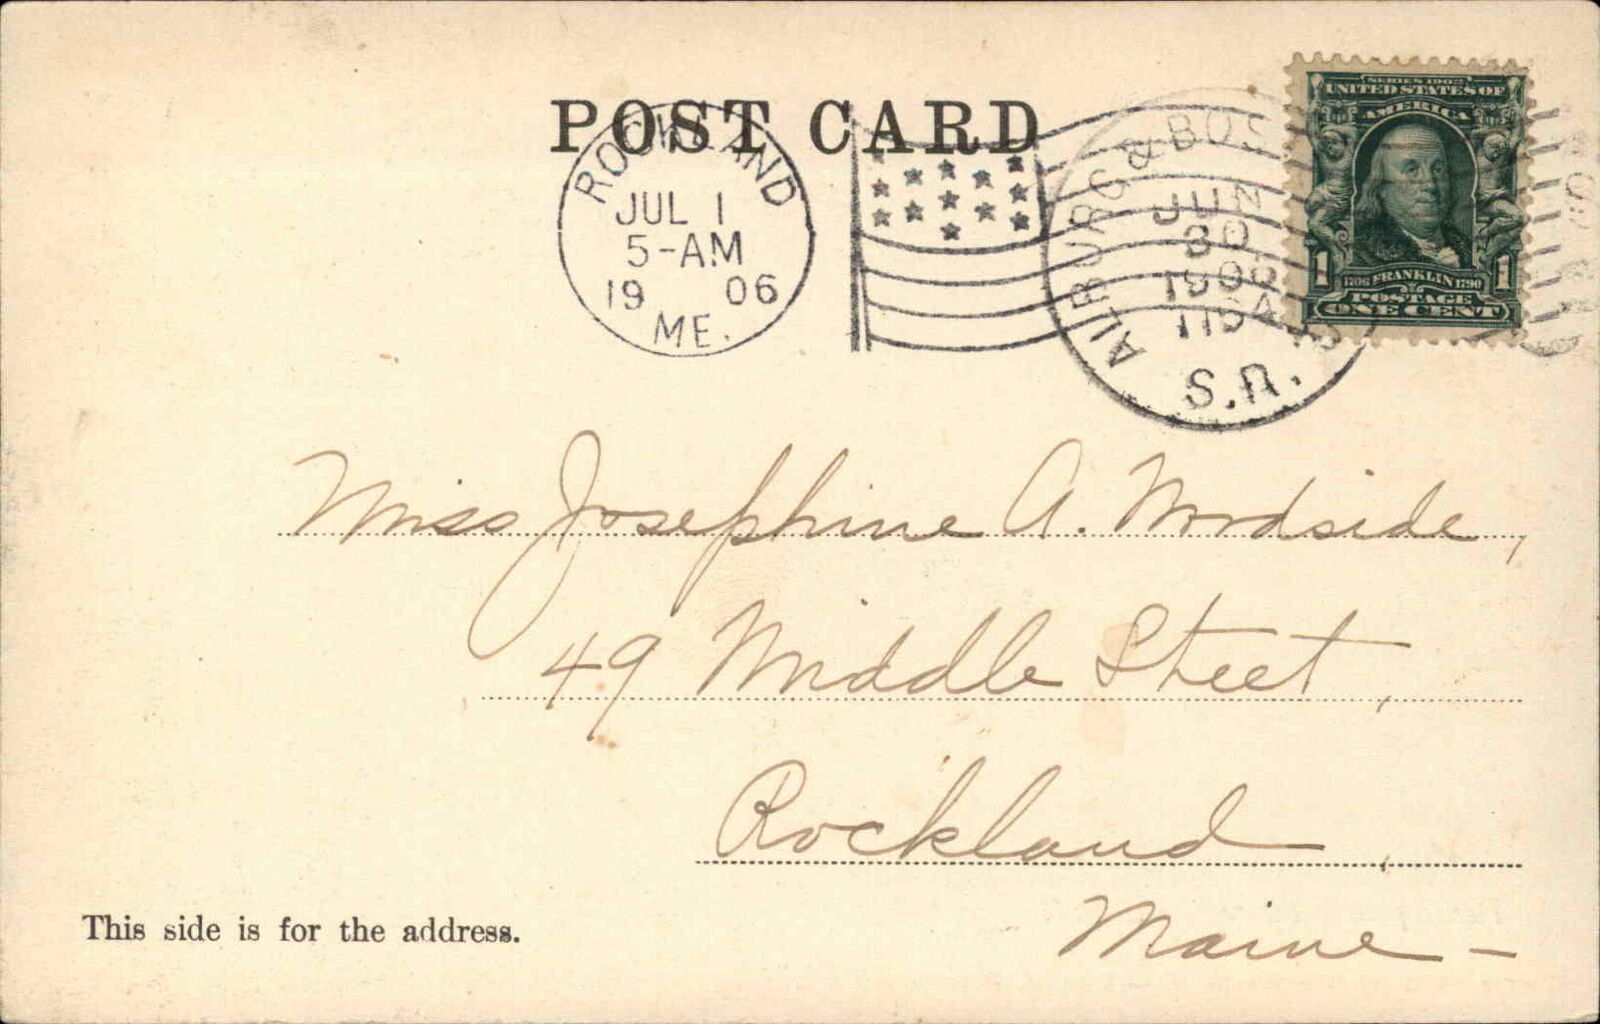 POST CARD
ROCKLAND
JUL 1
5-AM
19 06
ME.
ALBURG & BOS
JUN
30
1906
S.R.
SERIES 1902
UNITED STATES OF
AMERICA
1 1706 FRANKLIN 1790 1
POSTAGE
ONE CENT
Miss Josephine A. Woodside,
49 Middle Street,
Rockland,
Maine -
This side is for the address.